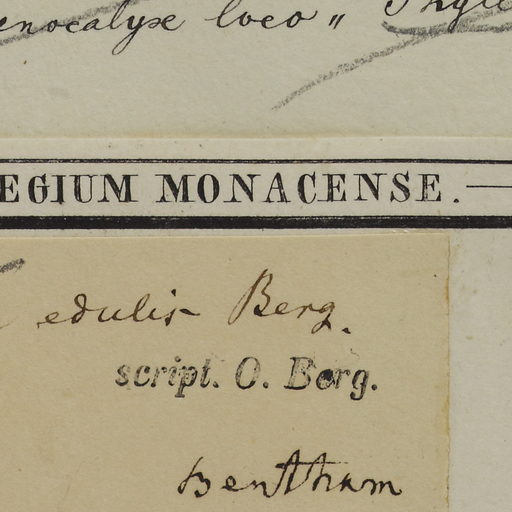 enocalyx loco "
EGIUM MONACENSE.
edulis Berg.
script. O. Berg.
Bentham